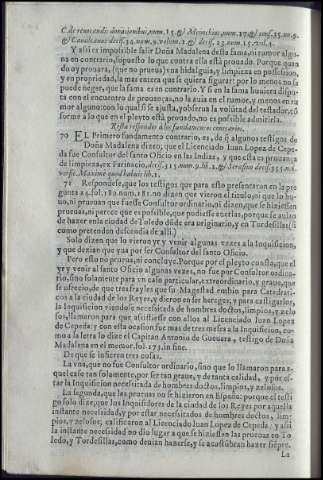 C de reuocandis donationibus, num. 15. & Menochius, num. 27. & cons. 35. nu. 9.
& Caualcanus decis. 34. num. 9. volum. 2. & decis. 23. num. 15. vol. 1.
Y assi es impossible salir Doña Madalena desta fama, ni rumor algu-
na en contrario, supuesto lo que contra ella está prouado. Porque quan
do ay prouara, (que no prueua) vna hidalguia, y limpieza en possession,
y en propriedad, la mas entera que se quiera figurar: por lo menos no se
puede negar, que la fama es en contrario. Y si en la fama huuiera disputa
con el encuentro de prouanças, no la auia en el rumor, y menos en ru
mor alguno: con lo qual si se ajusta, y obserua la voluntad del testador, có
forme a lo que en el pleyto está prouado, no es possible admitirla.
Resta responder a los fundamentos contrarios.
70 EL Primero fundamento contrario, es, de si algunos testigos de
Doña Madalena dizen, que el Licenciado Iuan Lopez de Cepe
da fue Consultor del santo Oficio en las Indias, y que esta es prouança
de limpieza, ex Farinacio, decis. 315. num. 9. lib. 2. & Serafino decis. 355. ni.
verbi. Maximè quod habuit lib. 1.
71 Respondese, que los testigos que para esto presentaron en la pre
gunta 24. fol. 180. num. 181. no dizen que vieron el titulo, ni que lo hu-
uo, ni prueuan que fuesse Consultor ordinario, ni dizen, que se hiziessen
prouanças, ni parece que es possible, que pudiesse auerlas, porque se auian
de hazer en la ciudad de Toledo dõde era originario, y en Tordesillas (si
como pretenden descendia de alli.)
Solo dizen que lo vieron yr y venir algunas vezes a la Inquisicion,
y que dezian que yua por ser Consultor del santo Oficio.
Pero esto no prueua, ni concluye. Porque por el pleyto consta, que el
yr y venir al santo Oficio algunas vezes, no fue por Consultor ordina-
rio, sino solamente para vn caso particular, extraordinario, y graue, que
se ofrecio, de que tres frayles que su Magestad embio para Catedrati-
cos a la ciudad de los Reyes, y dieron en ser hereges, y para castigarlos,
la Inquisicion viendose necessitada de hombres doctos, limpios, y zelo
sos, llamaron para que assistiesse con ellos al Licenciado Iuan Lopez
de Cepeda: y con esta ocasion fue mas de tres meses a la Inquisicion, co-
mo a la letra lo dize el Capitan Antonio de Gueuara, testigo de Doña
Madalena en el memor. fol. 173. in fine.
De que se infieren tres cosas.
La vna, que no fue Consultor ordinario, sino que lo llamaron para a-
quel caso tan solamente, por ser tan graue, y de tanta calidad, y por es-
tar la Inquisicion necessitada de hombres doctos, limpios, y zelosos.
La segunda, que las prouanças no se hizieron en España: porque el testi
go solo dize, que los Inquisidores de la ciudad de los Reyes por aquella
instante necessidad, y por estar necessitados de hombres doctos, lim-
pios, y zelosos, calificaron al Licenciado Iuan Lopez de Cepeda: y assi
la instante necessidad no dio lugar a que se hiziessen las prouanças en To
ledo, y Tordesillas, como deuian hazerse, y se acostũbran hazer siẽpre.
La